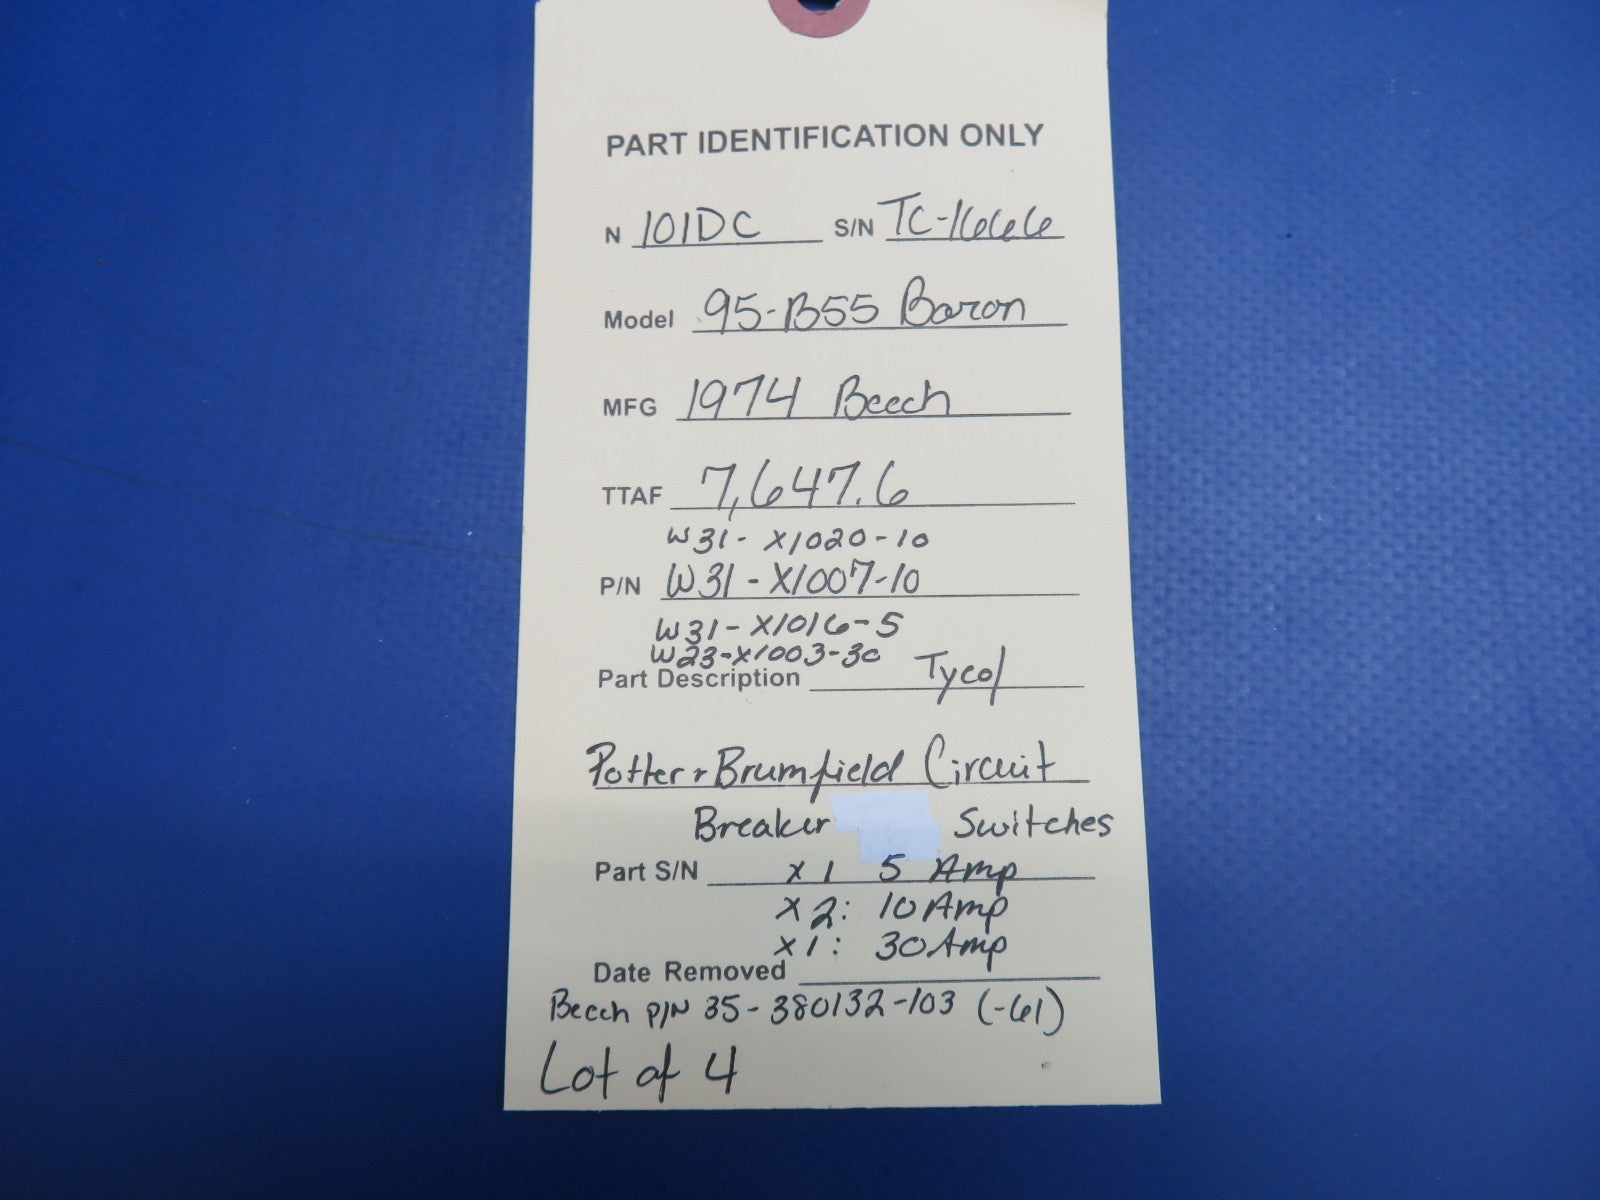 PART IDENTIFICATION ONLY
N 101DC S/N TC-1666
Model 95-B55 Baron
MFG 1974 Beech
TTAF 7,647.6
W31- X1020-10
P/N W31-X1007-10
W31-X1016-5
W23-X1003-30
Part Description Tyco/
Potter & Brumfield Circuit
Breaker Switches
Part S/N x 1 5 Amp
x 2: 10 Amp
x 1: 30 Amp
Date Removed
Beech P/N 35-380132-103 (-61)
Lot of 4